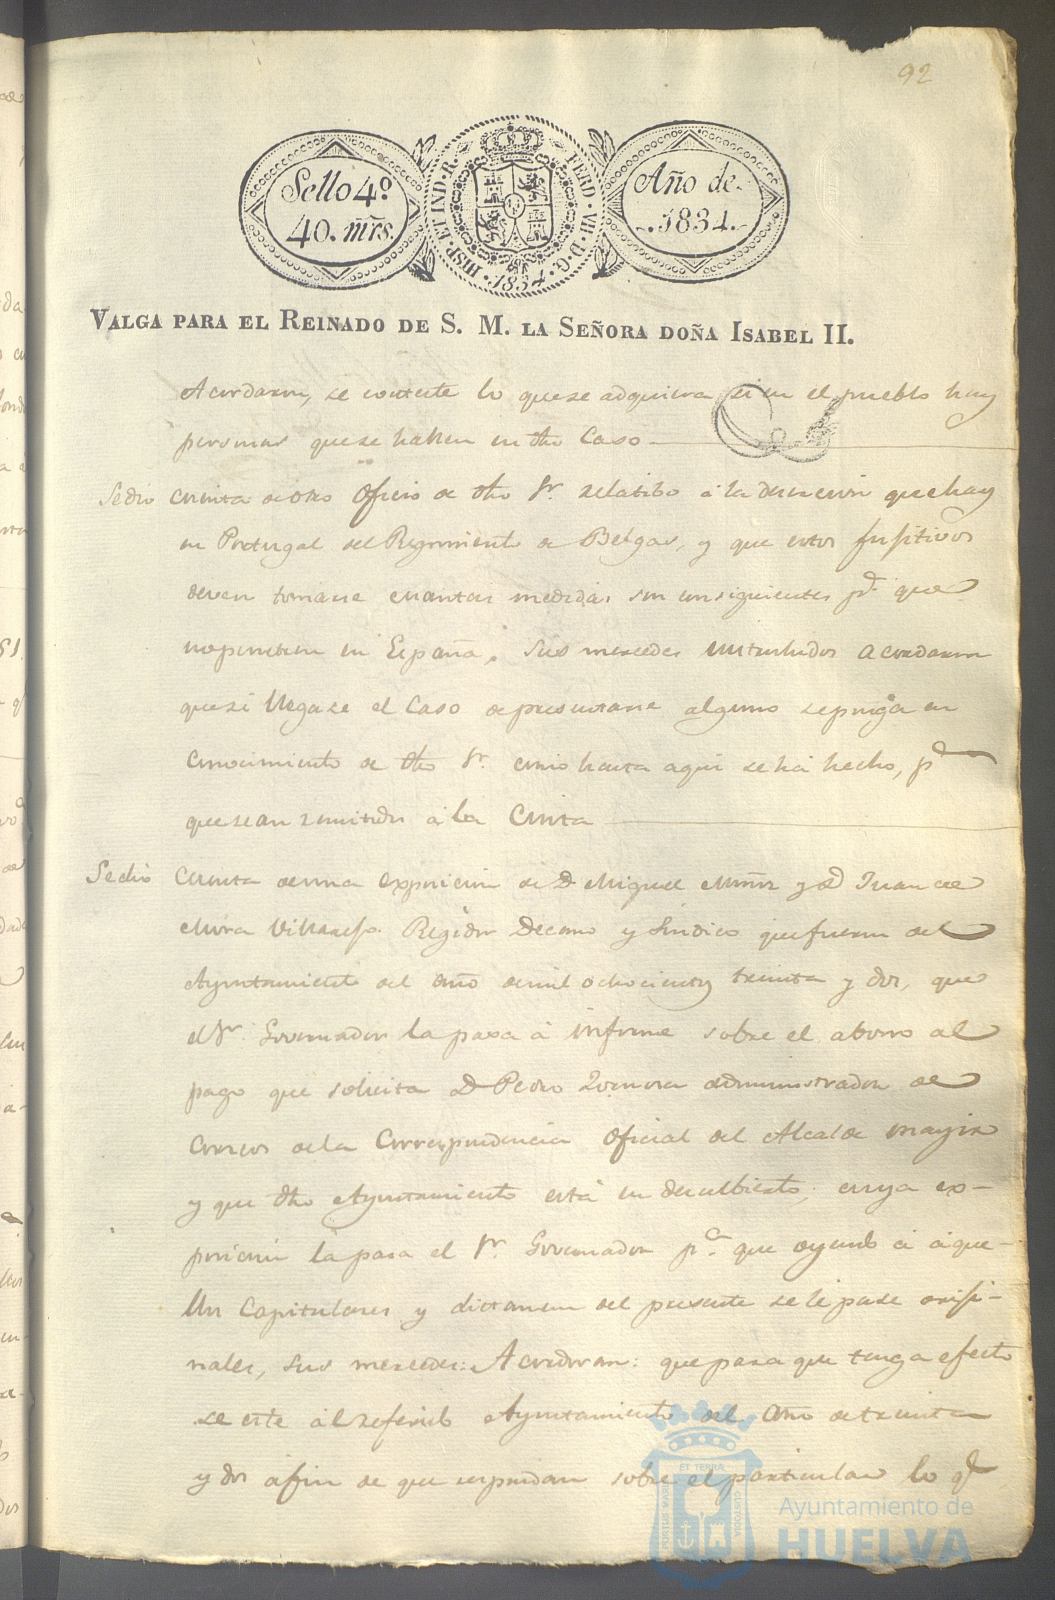 92
Sello 4.º
40. mrs.
HISP. ET IND. R. FERD. VII. D. G.
1834
Año de
1834.
VALGA PARA EL REINADO DE S. M. LA SEÑORA DOÑA ISABEL II.
Acordaron, se conteste lo que se adquiera si en el pueblo hay
personas que se hallen en dho Caso
Sedio cuenta de otro Oficio de dho Sr. relatibo á la desercion que hay
en Portugal del Regimiento de Belgas, y que estos fujitivos
deven tomarse cuantas medidas son consiguientes pa. que
no penetren en España. Sus mercedes enterados acordaron
que si llegase el Caso de presentarse alguno se ponga en
conocimiento de dho Sr. como hasta aqui se há hecho, pa
que sean remitidos á la Corta
Sedio cuenta de una exposicion de Dn Miguel Muñoz y Dn Juan de
Mora Villarejo Regidor Decano y Sindico que fueron del
Ayuntamiento del año de mil ochocientos treinta y dos, que
el Sr. Governador la pasa á informe sobre el abono al
pago que solicita Dn Pedro administrador de
Correos de la Correspondencia Oficial del Alcalde mayor
y que dho Ayuntamiento está en descubierto; cuya ex-
posicion la pasa el Sr. Governador pa. que oyendo á aque-
llos Capitulares y dictamen del presente se le pase oriji-
nales, sus mercedes: Acordaron: que para que tenga efecto
se oiste al referido Ayuntamiento del año de treinta
y dos á fin de que respondan sobre el particular lo qe
ET TERRÆ
PORTUS MARIS
CUSTODIA
Ayuntamiento de
HUELVA